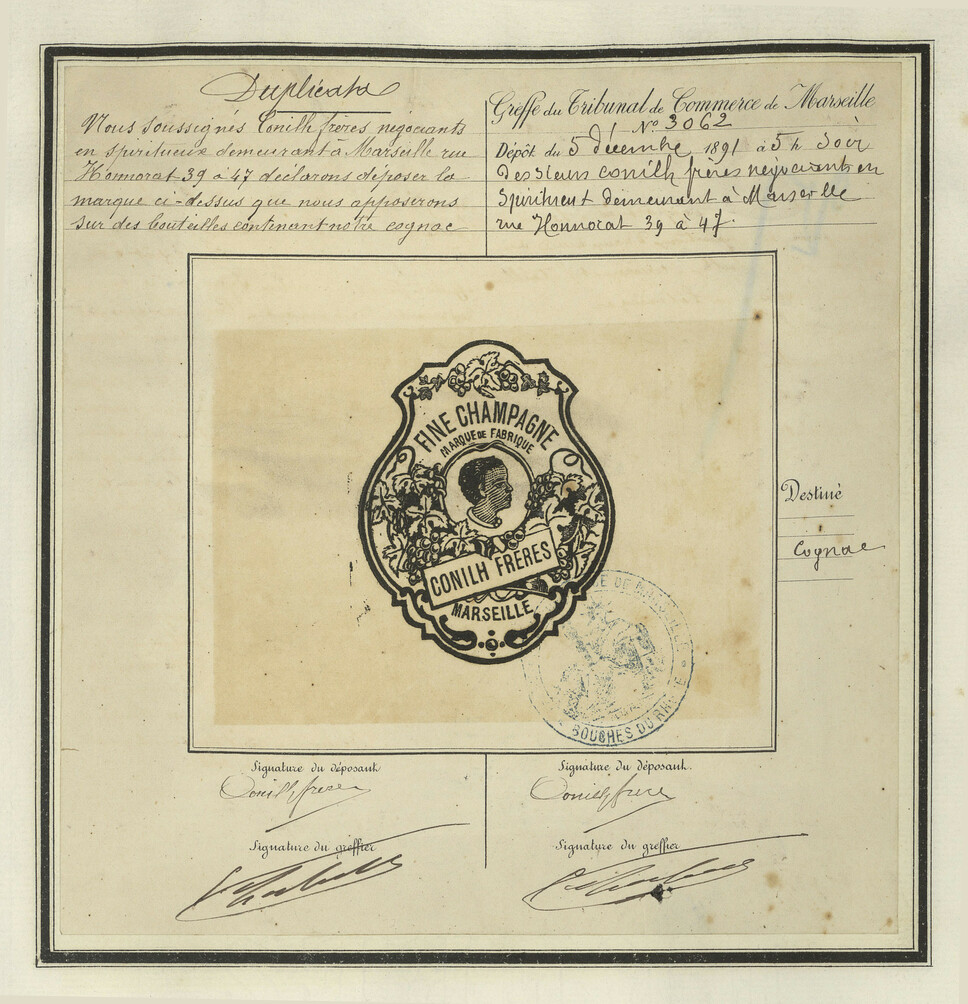 Duplicata
Nous soussignés Conilh frères négociants
en spiritueux demeurant à Marseille rue
Honnorat 39 à 47 déclarons déposer la
marque ci-dessus que nous apposerons
sur des bouteilles contenant notre cognac
Greffe du Tribunal de Commerce de Marseille
N° 3062
Dépôt du 5 décembre 1891 à 5 h soir
Des sieurs conilh frères négociants en
Spiritueux demeurant à Marseille
rue Honnorat 39 à 47.
FINE CHAMPAGNE
MARQUE DE FABRIQUE
CONILH FRERES
MARSEILLE
Destiné
Cognac
DE MARSEILLE
BOUCHES DU RHÔNE
Signature du déposant
Conilh frères
Signature du déposant.
Conilh frères
Signature du greffier
Signature du greffier